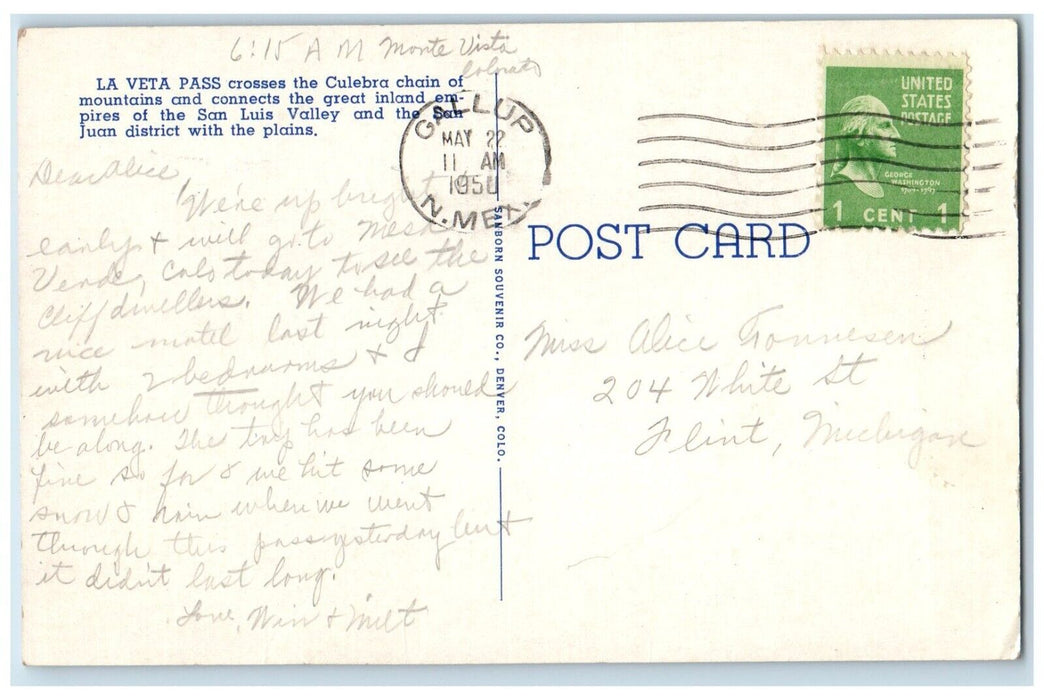 6:15 A M Monte Vista
Colorado
LA VETA PASS crosses the Culebra chain of
mountains and connects the great inland em-
pires of the San Luis Valley and the San
Juan district with the plains.
Dear Alice
We're up bright
early & will go to Mesa
Verde, Colo today to see the
Cliff dwellers. We had a
nice motel last night
with 2 bedrooms & I
somehow thought you should
be along. The trip has been
fine so far & we hit some
snow & rain when we went
through this pass yesterday but
it didn't last long.
Love, Win & Milt
GALLUP
MAY 22
11 AM
1950
N.MEX.
SANBORN SOUVENIR CO., DENVER, COLO.
UNITED
STATES
POSTAGE
GEORGE
WASHINGTON
1789-1797
1 CENT 1
POST CARD
Miss Alice Tonnesen
204 White St
Flint, Michigan